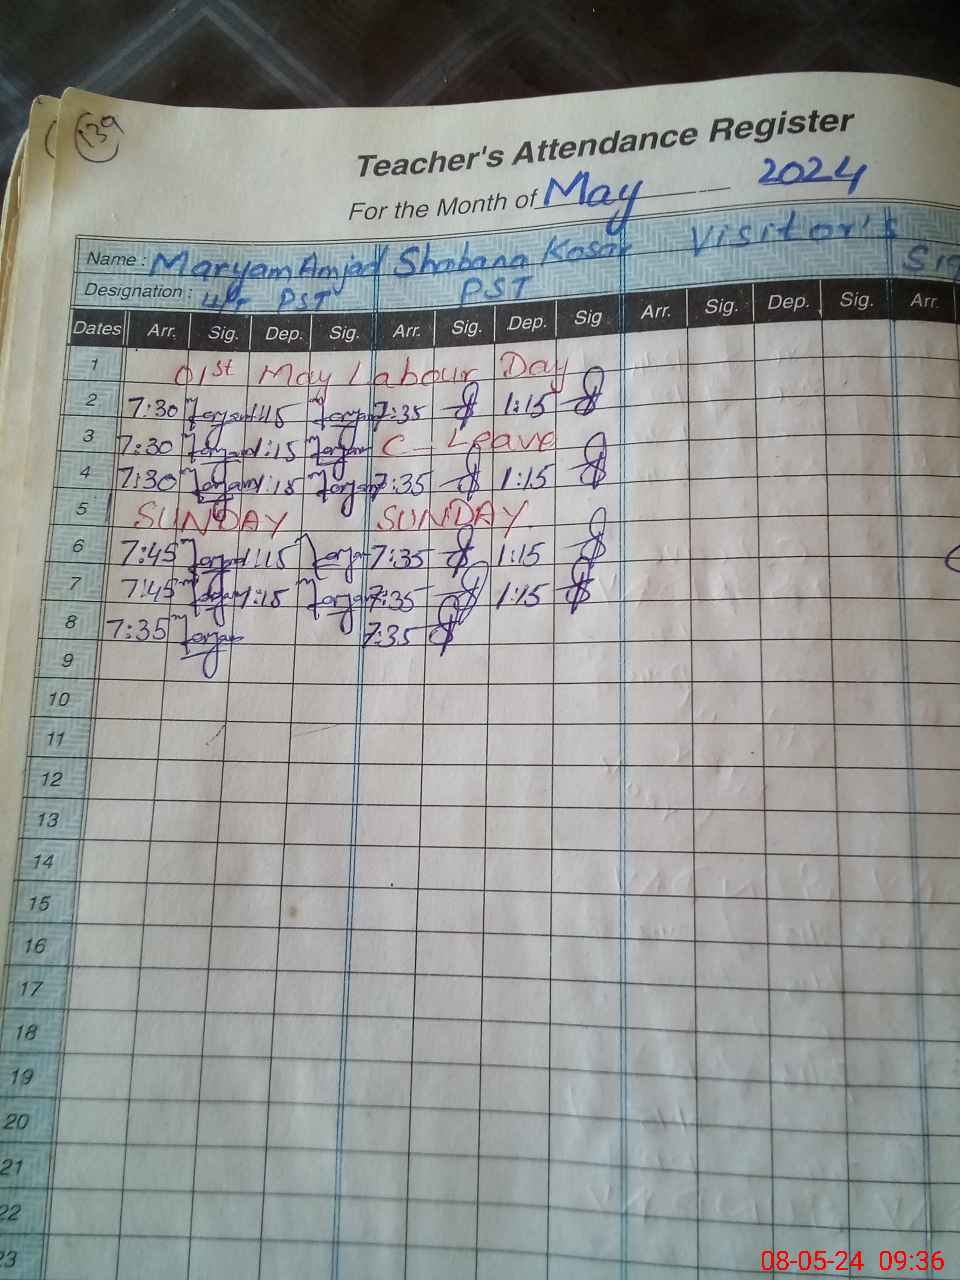 139
Teacher's Attendance Register
For the Month of May 2024
Name : Maryam Amjad Shabana Kosar Visitor's Sig
Designation : PST PST
Dates Arr. Sig. Dep. Sig. Arr. Sig. Dep. Sig Arr. Sig. Dep. Sig. Arr.
1 01st May Labour Day
2 7:30 1:15 7:35 1:15
3 7:30 1:15 C- Leave
4 7:30 1:15 7:35 1:15
5 SUNDAY SUNDAY
6 7:45 1:15 7:35 1:15
7 7:45 1:15 7:35 1:15
8 7:35 7:35
9
10
11
12
13
14
15
16
17
18
19
20
21
22
23
08-05-24 09:36